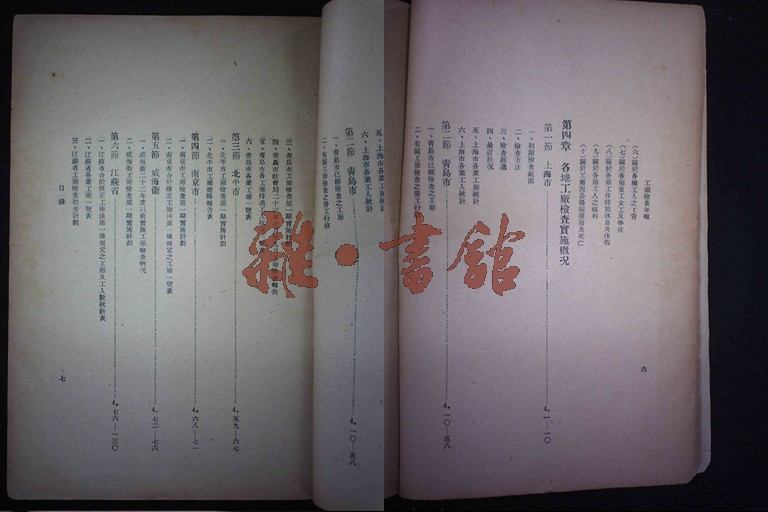 工廠檢查年報
六
(六)關於各廠工人之工資
(七)關於各廠童工女工及學徒
(八)關於各廠工作時間休息及休假
(九)關於各廠工人之福利
(十)關於工廠因公傷病殘廢及死亡
第四章 各地工廠檢查實施概況
第一節 上海市 4.一—一〇
一、初期檢查範圍
二、檢查方法
三、檢查經過
四、最近狀況
五、上海市各業工廠統計
六、上海市各業工人統計
第二節 青島市 4.一〇—五八
一、青島市已經檢查之工廠
二、有關工廠檢查之勞工行政
五、上海市各業工廠統計
六、上海市各業工人統計
第二節 青島市 4.一〇—五八
一、青島市已經檢查之工廠
二、有關工廠檢查之勞工行政
三、青島市工廠檢查第一期實施計劃
四、青島市社會局二十
報告
五、青島市各業工廠待遇
六、青島市各業工廠一覽表
第三節 北平市 4.五九—六七
一、北平市工廠檢查第一期實施計劃
二、北平市工廠檢查簡略報告表
第四節 南京市 4.六八—七一
一、南京市工廠檢查第一期實施計劃
二、南京市合於修正工廠法第一條規定之工廠一覽表
第五節 威海衛 4.七二—七六
一、威海衛二十二年度以前實施工廠檢查概況
二、威海衛工廠檢查第一期實施計劃
第六節 江蘇省 4.七六—一三〇
一、江蘇省合於修正工廠法第一條規定之工廠及工人數統計表
二、江蘇省各業工廠一覽表
三、江蘇省工廠檢查初步計劃
目錄
七
雜·書館